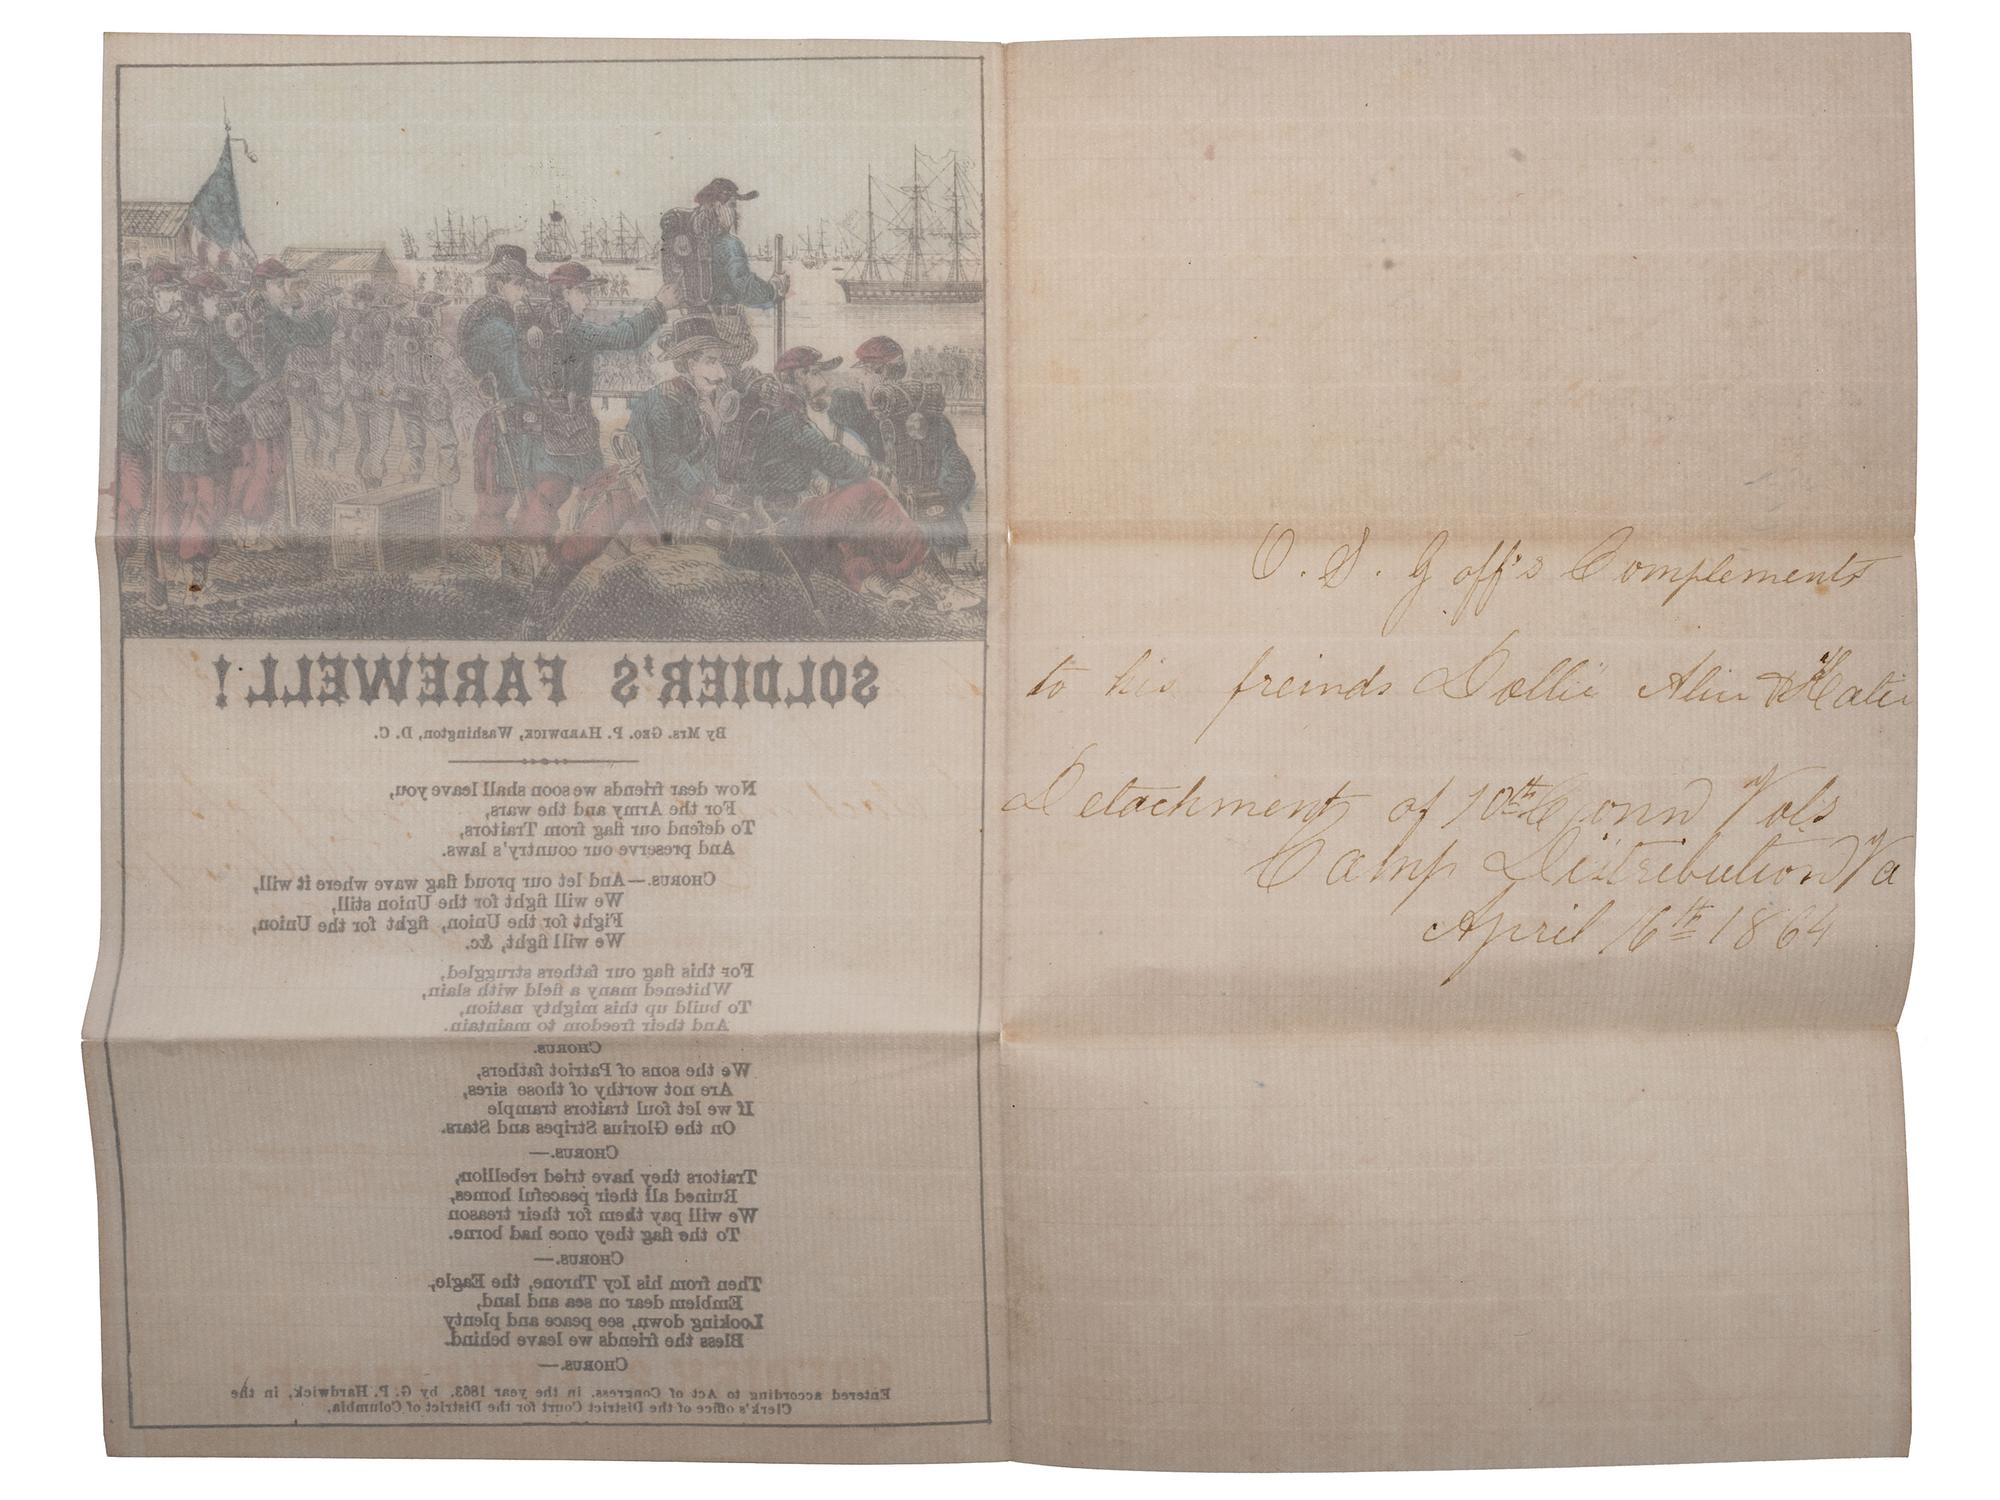 SOLDIER'S FAREWELL!
By Mrs. Geo. P. Hardwick, Washington, D. C.
Now dear friends we soon shall leave you,
For the Army and the wars,
To defend our flag from Traitors,
And preserve our country's laws.
Chorus.—And let our proud flag wave where it will,
We will fight for the Union still,
Fight for the Union, fight for the Union,
We will fight, &c.
For this flag our fathers struggled,
Whitened many a field with slain,
To build up this mighty nation,
And their freedom to maintain.
Chorus.
We the sons of Patriot fathers,
Are not worthy of those sires,
If we let foul traitors trample
On the Glorius Stripes and Stars.
Chorus.—
Traitors they have tried rebellion,
Ruined all their peaceful homes,
We will pay them for their treason
To the flag they once had borne.
Chorus.—
Then from his Icy Throne, the Eagle,
Emblem dear on sea and land,
Looking down, see peace and plenty
Bless the friends we leave behind.
Chorus.—
Entered according to Act of Congress, in the year 1863, by G. P. Hardwick, in the
Clerk's office of the District Court for the District of Columbia.
O. S. Goff's Complements
to his freinds Dollie Alice & Katie
Detachment of 10th Conn Vols
Camp Distribution Va
April 16th 1864